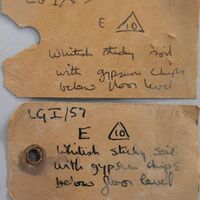 LG I/57
E 10
Whitish sticky soil
with gypsum chips
below floor level
LG I/57
E 10
Whitish sticky soil
with gypsum chips
below floor level